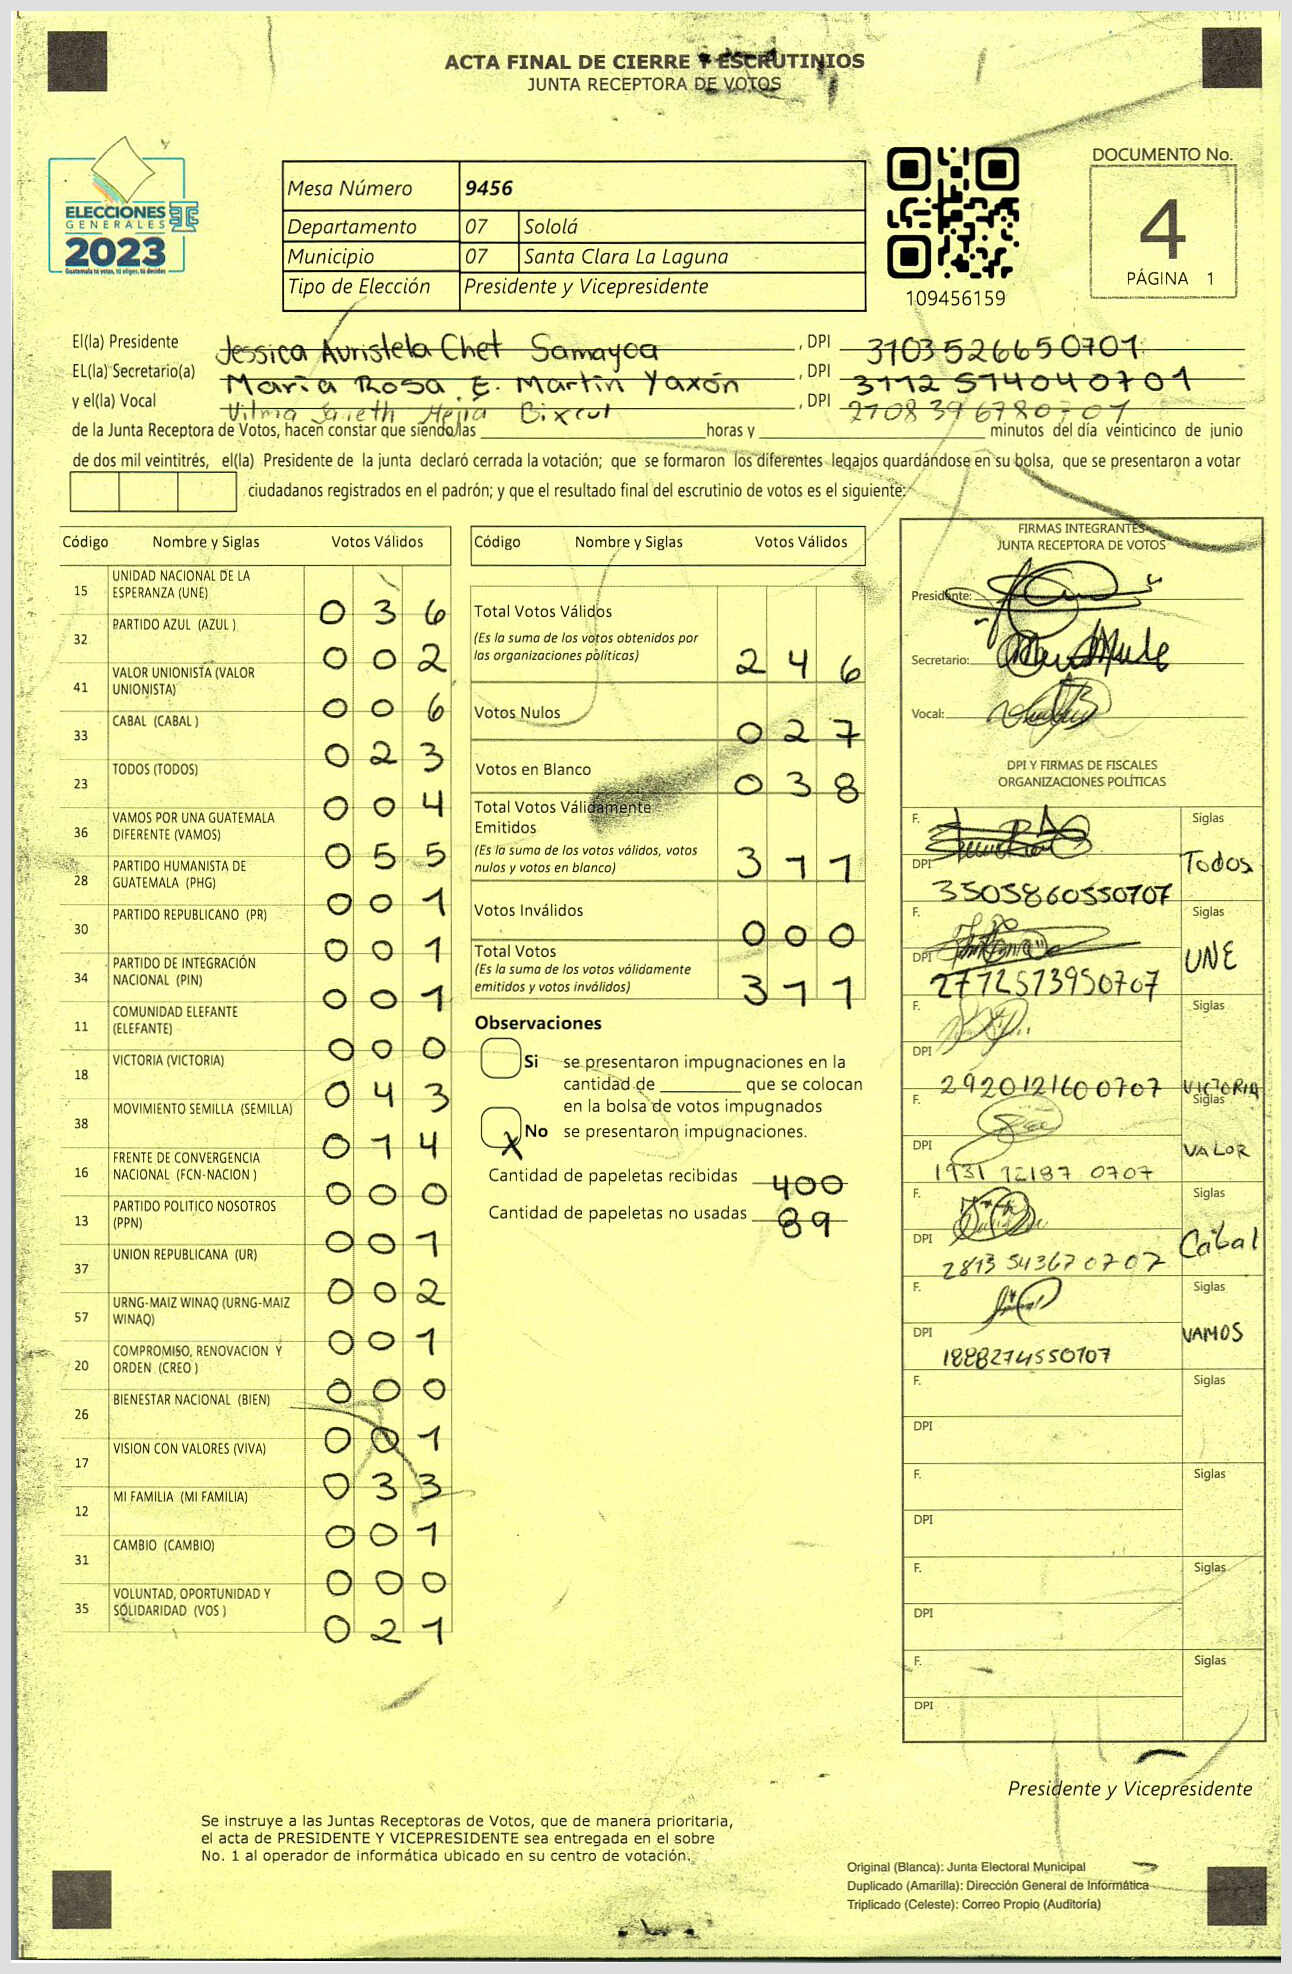 ACTA FINAL DE CIERRE Y ESCRUTINIOS
JUNTA RECEPTORA DE VOTOS
ELECCIONES
GENERALES
2023
Guatemala tú votas, tú eliges, tú decides
Mesa Número 9456
Departamento 07 Sololá
Municipio 07 Santa Clara La Laguna
Tipo de Elección Presidente y Vicepresidente
109456159
DOCUMENTO No.
4
PÁGINA 1
El(la) Presidente Jessica Auristela Chet Samayoa , DPI 3103526650701
EL(la) Secretario(a) María Rosa E. Martin Yaxón , DPI 3112514040701
y el(la) Vocal Vilma Janeth Mejía Bixcul , DPI 2708396780701
de la Junta Receptora de Votos, hacen constar que siendo/las horas y minutos del día veinticinco de junio
de dos mil veintitrés, el(la) Presidente de la junta declaró cerrada la votación; que se formaron los diferentes legajos guardándose en su bolsa, que se presentaron a votar
ciudadanos registrados en el padrón; y que el resultado final del escrutinio de votos es el siguiente:
Código Nombre y Siglas Votos Válidos
15 UNIDAD NACIONAL DE LA ESPERANZA (UNE) 036
32 PARTIDO AZUL (AZUL ) 002
41 VALOR UNIONISTA (VALOR UNIONISTA) 006
33 CABAL (CABAL ) 023
23 TODOS (TODOS) 004
36 VAMOS POR UNA GUATEMALA DIFERENTE (VAMOS) 055
28 PARTIDO HUMANISTA DE GUATEMALA (PHG) 001
30 PARTIDO REPUBLICANO (PR) 001
34 PARTIDO DE INTEGRACIÓN NACIONAL (PIN) 001
11 COMUNIDAD ELEFANTE (ELEFANTE) 000
18 VICTORIA (VICTORIA) 043
38 MOVIMIENTO SEMILLA (SEMILLA) 014
16 FRENTE DE CONVERGENCIA NACIONAL (FCN-NACION ) 000
13 PARTIDO POLITICO NOSOTROS (PPN) 001
37 UNION REPUBLICANA (UR) 002
57 URNG-MAIZ WINAQ (URNG-MAIZ WINAQ) 001
20 COMPROMISO, RENOVACION Y ORDEN (CREO ) 000
26 BIENESTAR NACIONAL (BIEN) 001
17 VISION CON VALORES (VIVA) 033
12 MI FAMILIA (MI FAMILIA) 001
31 CAMBIO (CAMBIO) 000
35 VOLUNTAD, OPORTUNIDAD Y SOLIDARIDAD (VOS ) 021
Código Nombre y Siglas Votos Válidos
Total Votos Válidos 246
(Es la suma de los votos obtenidos por
las organizaciones políticas)
Votos Nulos 027
Votos en Blanco 038
Total Votos Válidamente
Emitidos 311
(Es la suma de los votos válidos, votos
nulos y votos en blanco)
Votos Inválidos 000
Total Votos 311
(Es la suma de los votos válidamente
emitidos y votos inválidos)
Observaciones
Si se presentaron impugnaciones en la
cantidad de que se colocan
en la bolsa de votos impugnados
X No se presentaron impugnaciones.
Cantidad de papeletas recibidas 400
Cantidad de papeletas no usadas 89
FIRMAS INTEGRANTES
JUNTA RECEPTORA DE VOTOS
Presidente:
Secretario:
Vocal:
DPI Y FIRMAS DE FISCALES
ORGANIZACIONES POLÍTICAS
F. Siglas
DPI 3503860550707 Todos
F. Siglas
DPI 2772573950707 UNE
F. Siglas
DPI 2920121600707 VICTORIA
F. Siglas
DPI 1931 12187 0707 VALOR
F. Siglas
DPI 2813 54367 0707 Cabal
F. Siglas
DPI 1888274550707 VAMOS
F. Siglas
DPI
F. Siglas
DPI
F. Siglas
DPI
F. Siglas
DPI
Presidente y Vicepresidente
Se instruye a las Juntas Receptoras de Votos, que de manera prioritaria,
el acta de PRESIDENTE Y VICEPRESIDENTE sea entregada en el sobre
No. 1 al operador de informática ubicado en su centro de votación.
Original (Blanca): Junta Electoral Municipal
Duplicado (Amarilla): Dirección General de Informática
Triplicado (Celeste): Correo Propio (Auditoría)